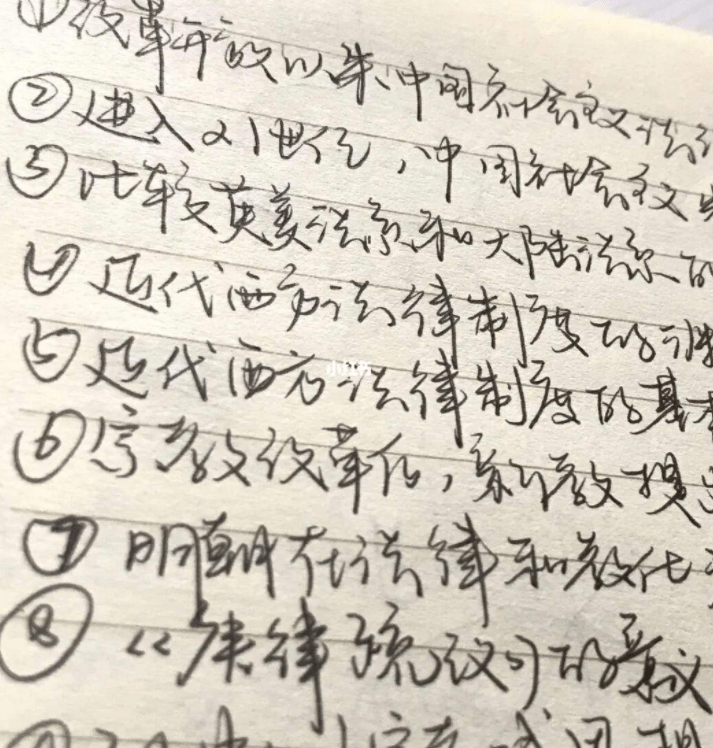 ①改革开放以来,中国社会主义法
②进入21世纪,中国社会主义
③比较英美法系和大陆法系的
④近代西方法律制度的
⑤近代西方法律制度的基本
⑥宗教改革后,新教提
⑦明朝在法律和教化
⑧《唐律疏议》的意义